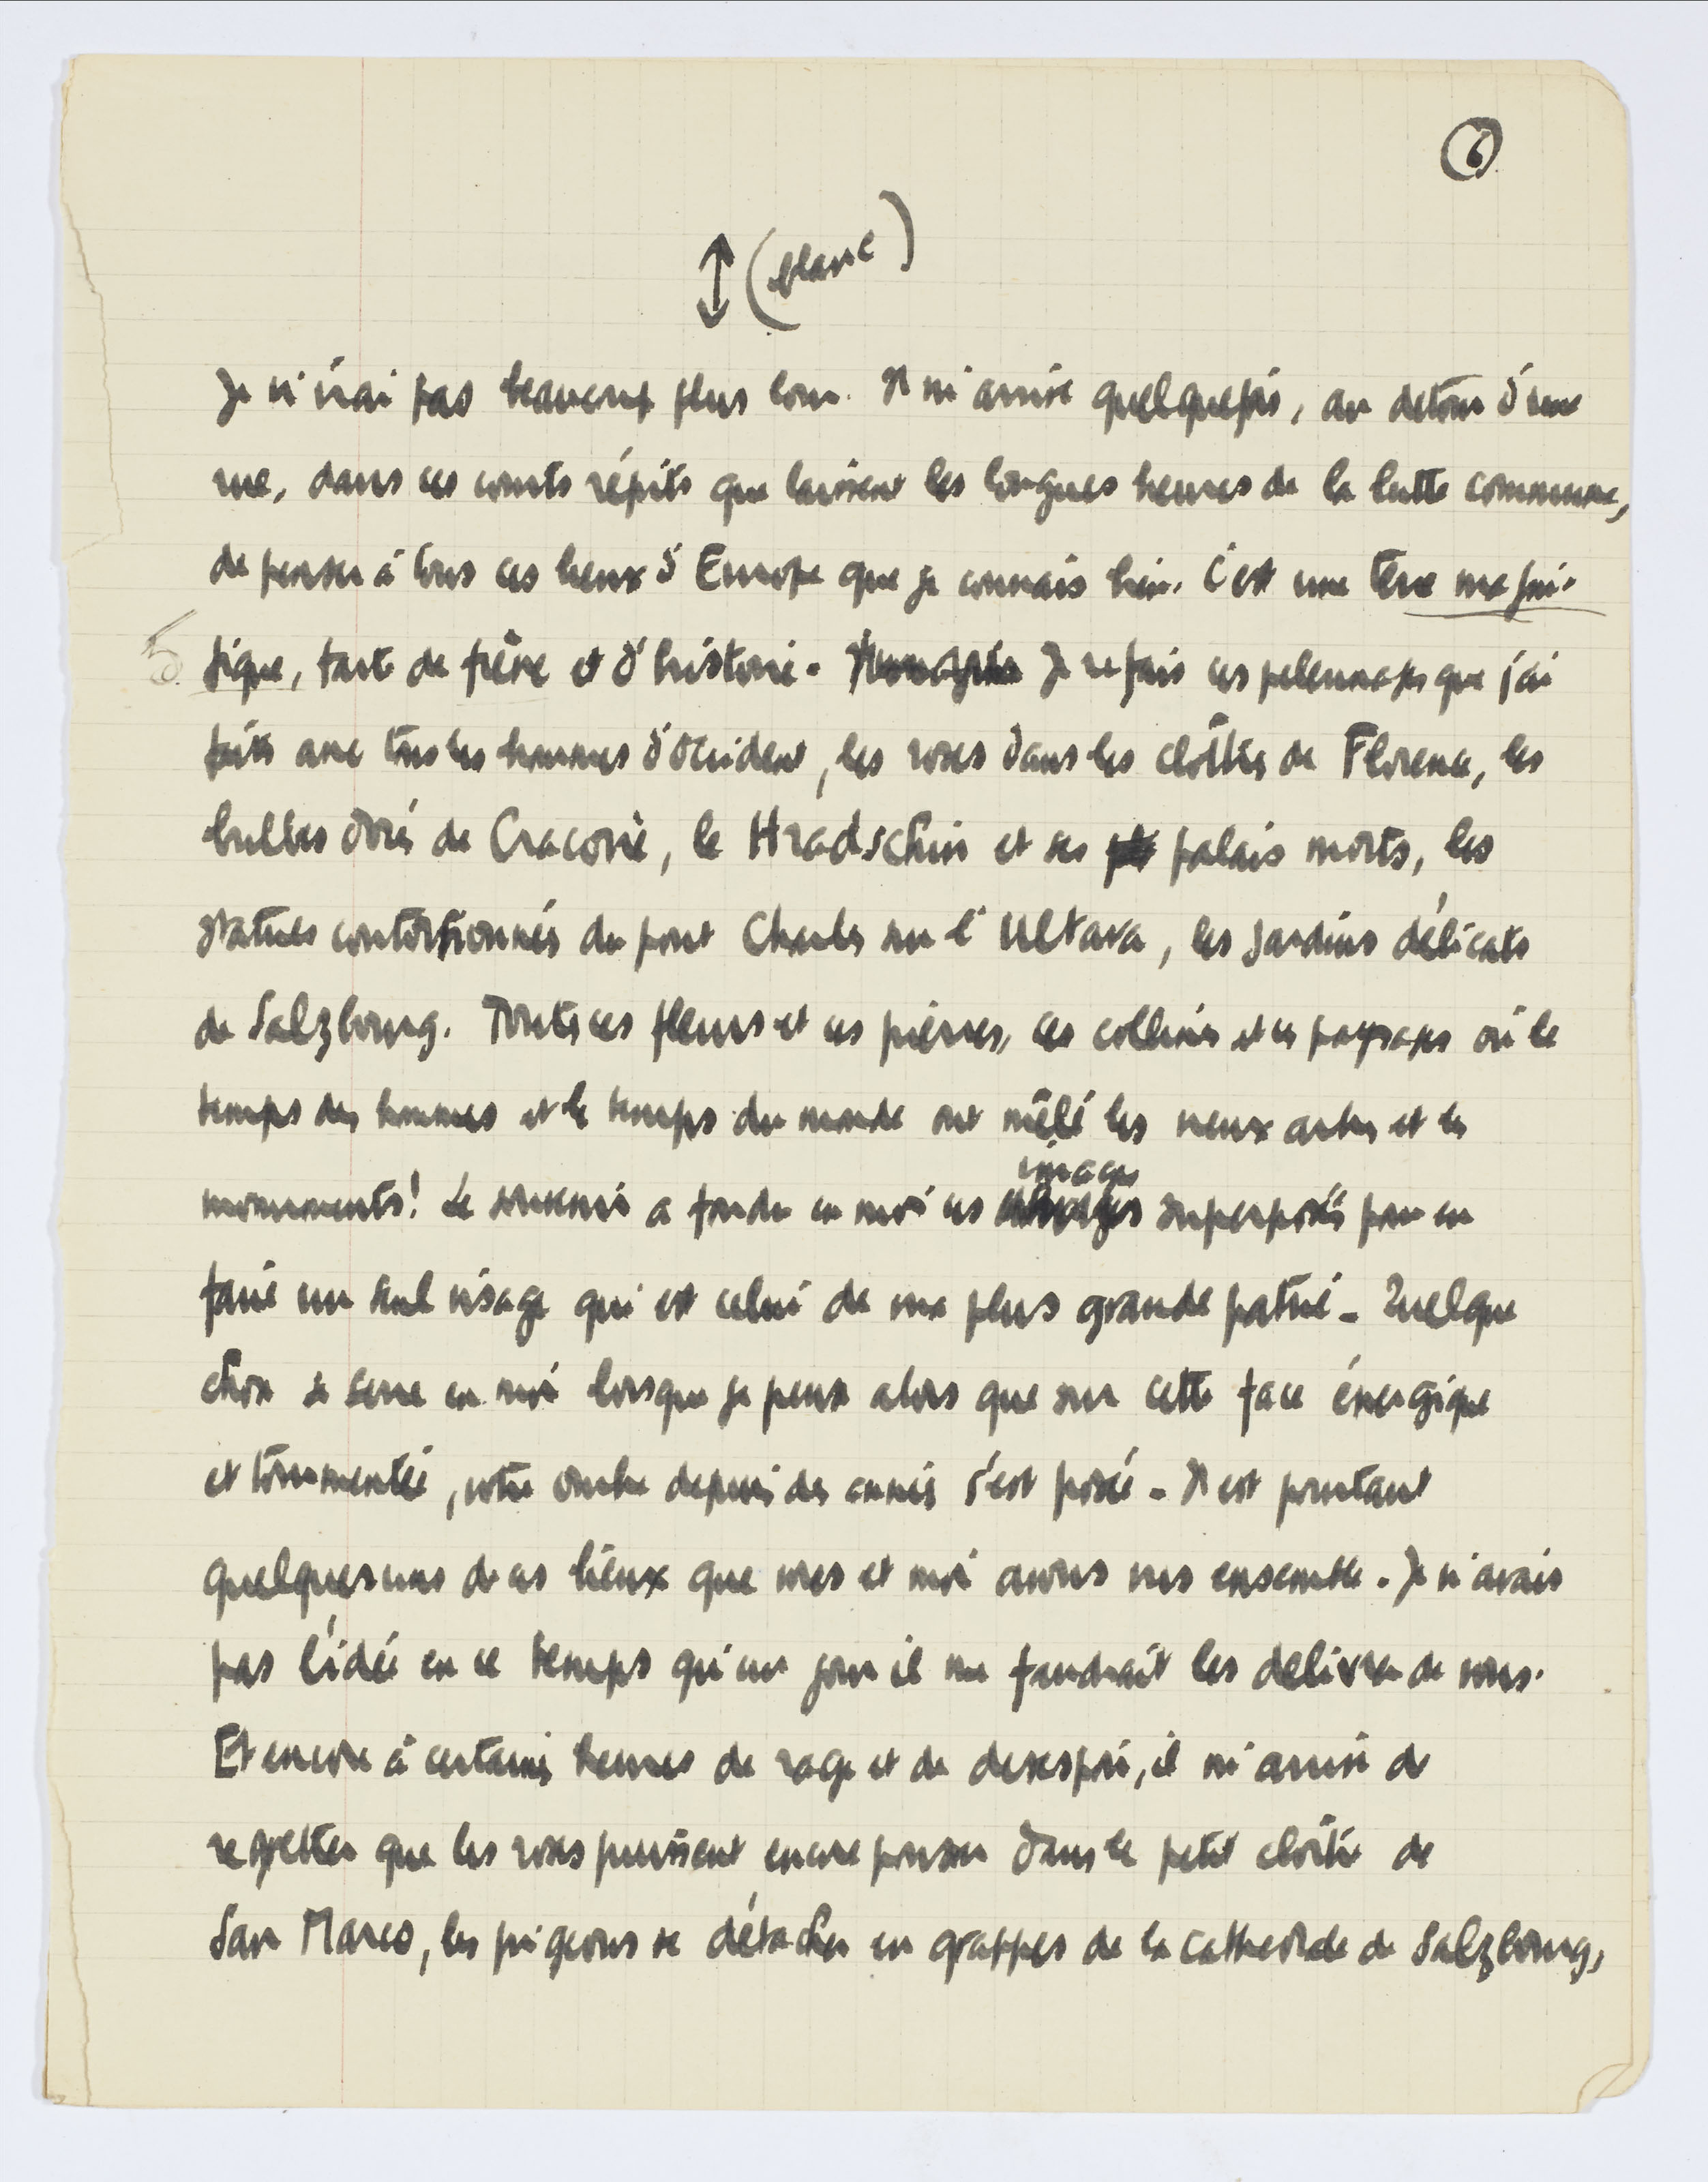 6
(blanc)
Je n'irai pas beaucoup plus loin. Il m'arrive quelquefois, au detour d'une
rue, dans ces courts répits que laissent les longues heures de la lutte commune,
de penser à tous ces lieux d'Europe que je connais bien. C'est une terre magni-
fique, faite de peine et d'histoire. Je refais ces pelerinages que j'ai
faits avec tous les hommes d'Occident, les roses dans les cloîtres de Florence, les
bulbes dorés de Cracovie, le Hradschin et ses palais morts, les
statues contorsionnées du pont Charles sur l'Ultava, les jardins délicats
de Salzbourg. Toutes ces fleurs et ces pierres, ces collines et ces paysages où le
temps des hommes et le temps du monde ont mêlé les vieux arbres et les
monuments! Le souvenir a fondu en moi ces images superposées pour en
faire un seul visage qui est celui de ma plus grande patrie - Quelque
chose se serre en moi lorsque je pense alors que sur cette face énergique
et tourmentée, votre ombre depuis des années s'est posée - Il est pourtant
quelques uns de ces lieux que vous et moi avons vus ensemble. Je n'avais
pas l'idée en ce temps qu'un jour il me faudrait les delivrer de vous.
Et encore à certaines heures de rage et de desespoir, il m'arrive de
regretter que les roses puissent encore pousser dans le petit cloître de
San Marco, les pigeons se détacher en grappes de la cathedrale de Salzbourg,